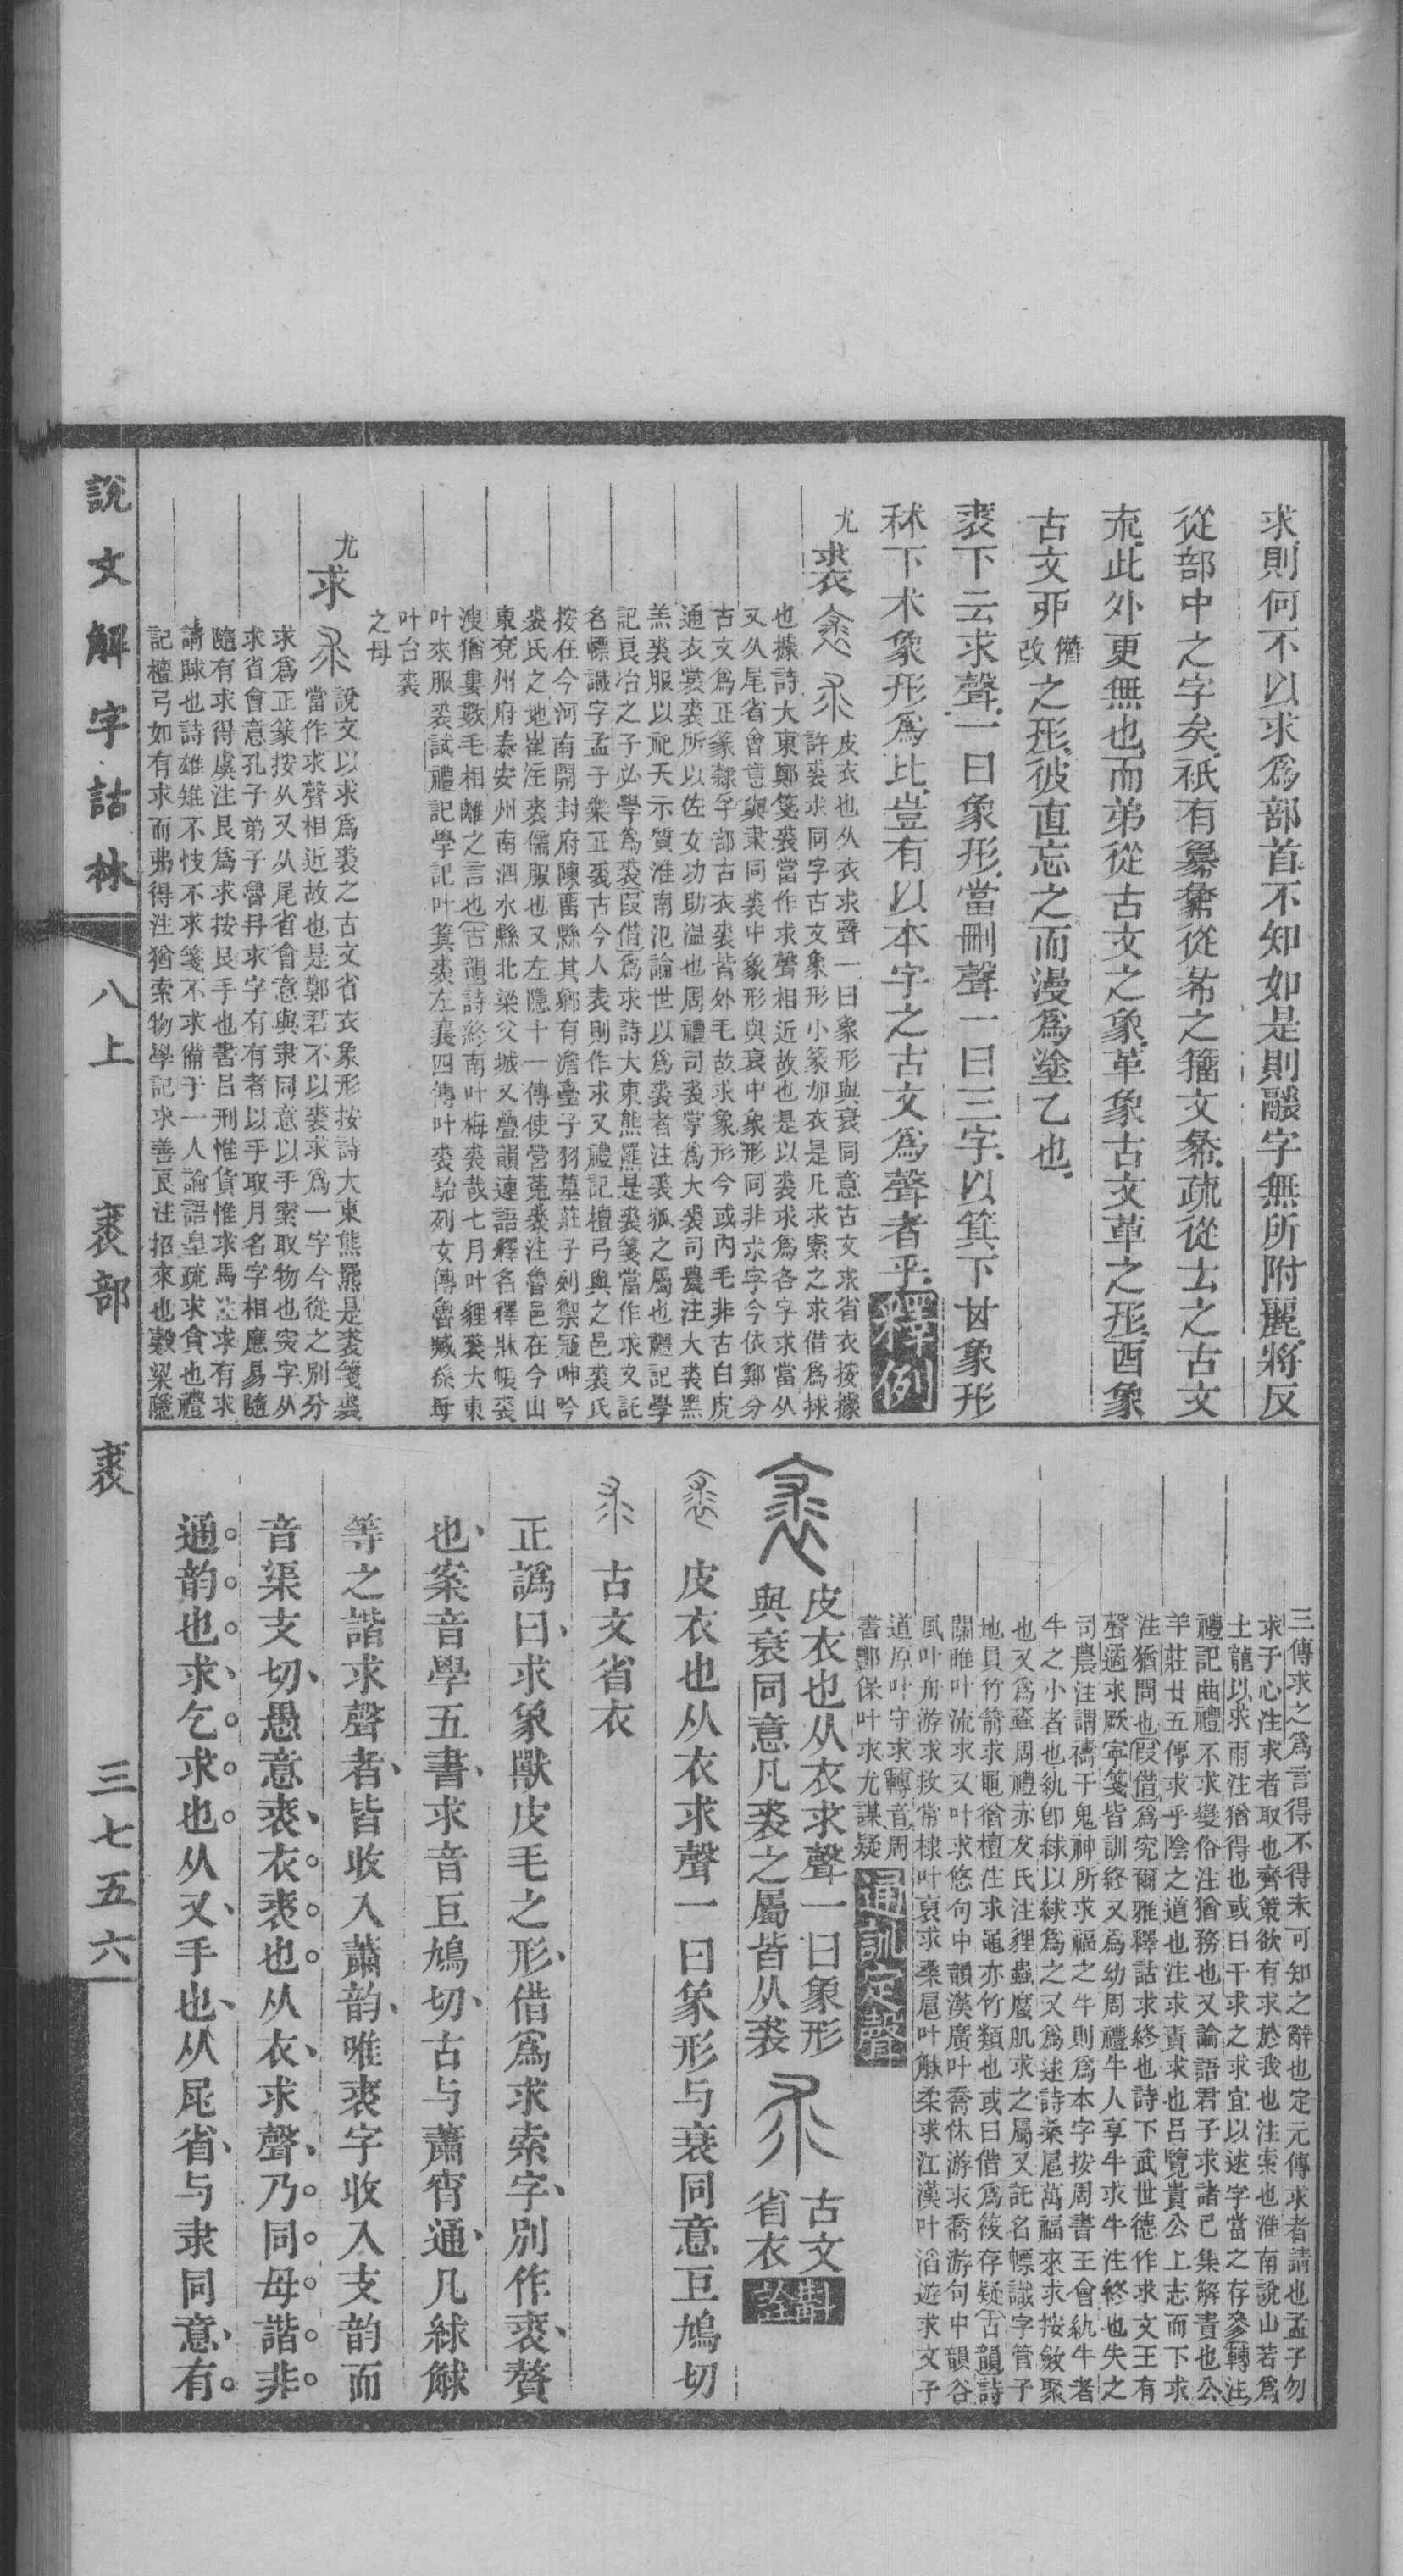 求則何不以求爲部首不知如是則鬷字無所附麗將反
從部中之字矣祇有
㐬此外更無也而弟從古文之象革象古文革之形酉象
古文丣
僭
改
之形彼直忘之而漫爲塗乙也
裘下云求聲一曰象形當刪聲一曰三字以箕下𠀠象形
秫下朮象形爲比豈有以本字之古文爲聲者乎
釋例
尤
裘
皮衣也从衣求聲一曰象形與衰同意古文求省衣按據
許裘求同字古文象形小篆加衣是凡求索之求借爲捄
也據詩大東鄭箋裘當作求聲相近故也是以裘求爲各字求當从
又从尾省會意與隶同裘中象形與衰中象形同非求字今依鄭分
古文爲正篆隸孚部古衣裘皆外毛故求象形今或內毛非古白虎
通衣裳裘所以佐女功助溫也周禮司裘掌爲大裘司農注大裘黑
羔裘服以祀天示質淮南氾論世以爲裘者注裘狐之屬也禮記學
記良冶之子必學爲裘叚借爲求詩大東熊羆是裘箋當作求又託
名幖識字孟子樂正裘古今人表則作求又禮記檀弓與之邑裘氏
按在今河南開封府陳畱縣其鄉有澹臺子羽墓莊子列禦寇呻吟
裘氏之地崔注裘儒服也又左隱十一傳使營菟裘注魯邑在今山
東兗州府泰安州南泗水縣北梁父城又疊韻連語釋名釋牀帳裘
溲猶婁數毛相離之言也古韻詩終南叶梅裘哉七月叶貍裘大東
叶來服裘試禮記學記叶箕裘左襄四傳叶裘駘列女傳魯臧孫母
叶台裘
之母
尤
求
說文以求爲裘之古文省衣象形按詩大東熊羆是裘箋裘
當作求聲相近故也是鄭君不以裘求爲一字今從之別分
求爲正篆按从又从尾省會意與隶同意以手索取物也㝁字从
求省會意孔子弟子魯冄求字有有者以手取月名字相應易隨
隨有求得虞注艮爲求按艮手也書呂刑惟貨惟求馬注求有求
請賕也詩雄雉不忮不求箋不求備于一人論語皇疏求貪也禮
記檀弓如有求而弗得注猶索物學記求善良注招來也穀梁隱
三傳求之爲言得不得未可知之辭也定元傳求者請也孟子勿
求于心注求者取也齊策欲有求於我也注索也淮南說山若爲
土龍以求雨注猶得也或曰干求之求宜以逑字當之存參轉注
禮記曲禮不求變俗注猶務也又論語君子求諸己集解責也公
羊莊廿五傳求乎陰之道也注求責求也呂覽貴公上志而下求
注猶問也叚借爲究爾雅釋詁求終也詩下武世德作求文王有
聲遹求厥寧箋皆訓終又爲幼周禮牛人享牛求牛注終也失之
司農注謂禱于鬼神所求福之牛則爲本字按周書王會紈牛者
牛之小者也紈卽絿以絿爲之又爲逑詩桑扈萬福來求按斂聚
也又爲蟊周禮赤犮氏注貍蟲䗪肌求之屬又託名幖識字管子
地員竹箭求黽猶檀注求黽亦竹類也或曰借爲筱存疑古韻詩
關雎叶流求又叶求悠句中韻漢廣叶喬休游求喬游句中韻谷
風叶舟游求救常棣叶裒求桑扈叶觩柔求江漢叶滔遊求文子
道原叶守求轉音周
書酆保叶求尤謀疑
通訓定聲
皮衣也从衣求聲一曰象形
與衰同意凡裘之屬皆从裘
古文
省衣
斠詮
皮衣也从衣求聲一曰象形与衰同意巨鳩切
古文省衣
正譌曰求象獸皮毛之形借爲求索字別作裘贅
也案音學五書求音巨鳩切古与蕭宵通凡絿觩
等之諧求聲者皆收入蕭韵唯裘字收入支韵而
音渠支切愚意裘衣裘也从衣求聲乃同母諧非
通韵也求乞求也从又手也从尾省与隶同意有
說文解字詁林
八上
裘部
裘
三七五六